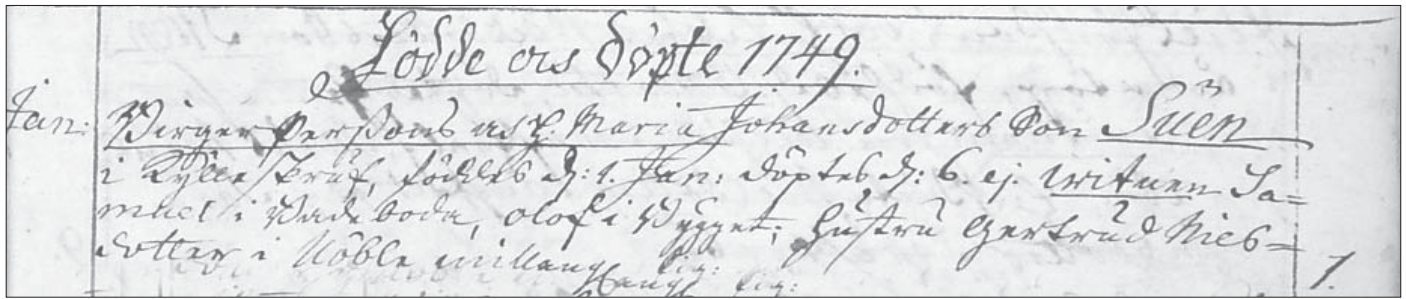 Födde och döpte 1749.
Jan: Birger Perssons och h. Maria Johansdotters Son Suen
i föddes d: 1. Jan: döptes d: 6. ej. witnen Sa=
muel i Wadeboda, olof i Bygget, hustru Gertrud Niels=
dotter i Nöble 1.